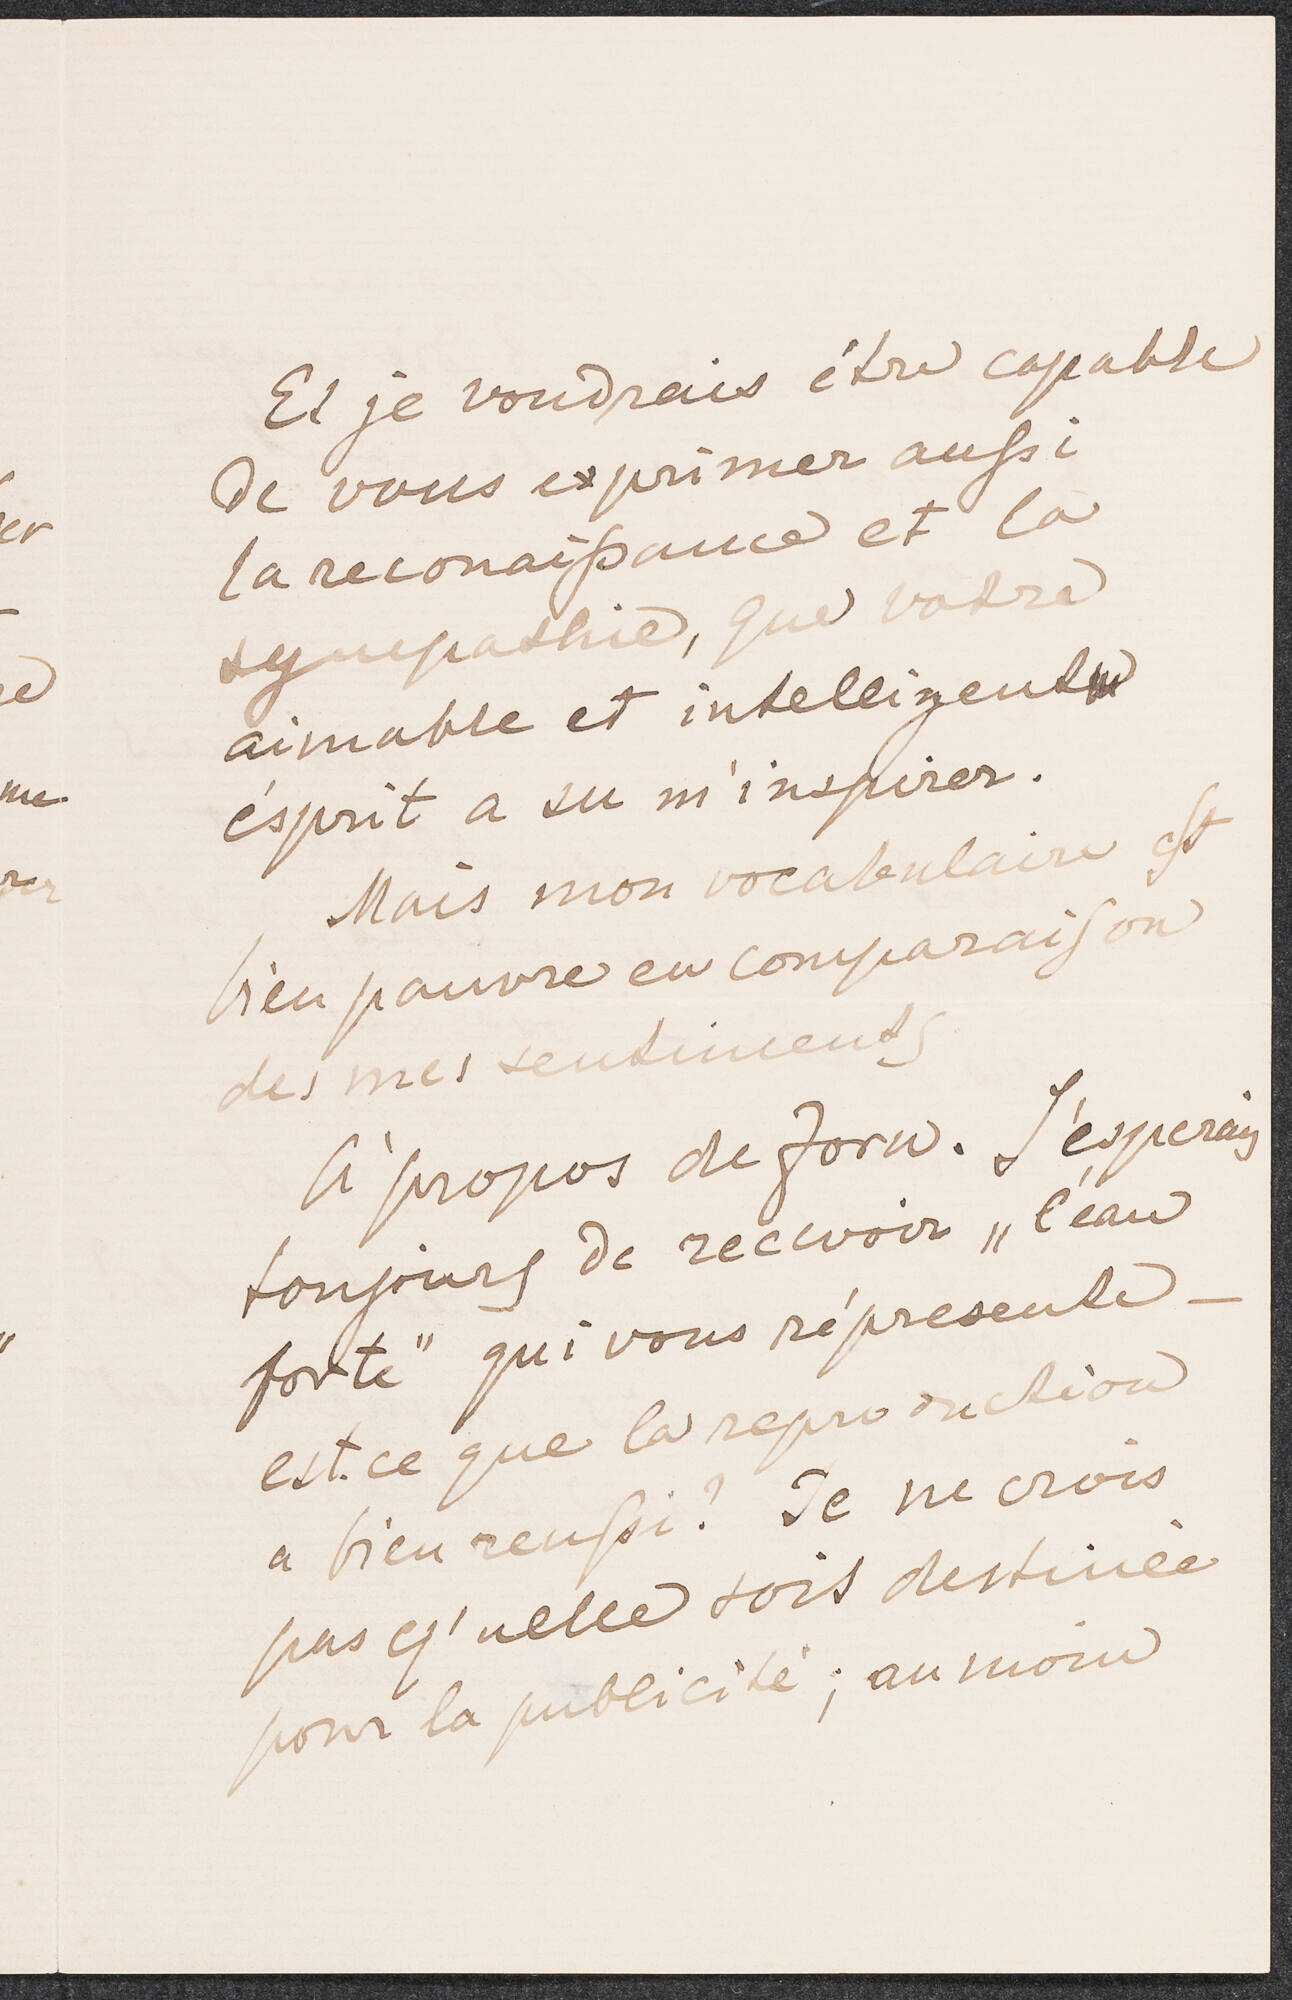 Et je voudrais étre capable
de vous exprimer aussi
la reconaissance et la
sympathie, que votre
aimable et intelligent
ésprit a su m'inspirer.
Mais mon vocabulaire est
bien pauvre en comparaison
des mes sentiments
À propos de Zorn. J'esperais
toujours de recevoir „l'éau
forte" qui vous répresente —
est-ce que la reproduction
a bien reussi? Je ne crois
pas qu'elle soit destinée
pour la publicité; au moin